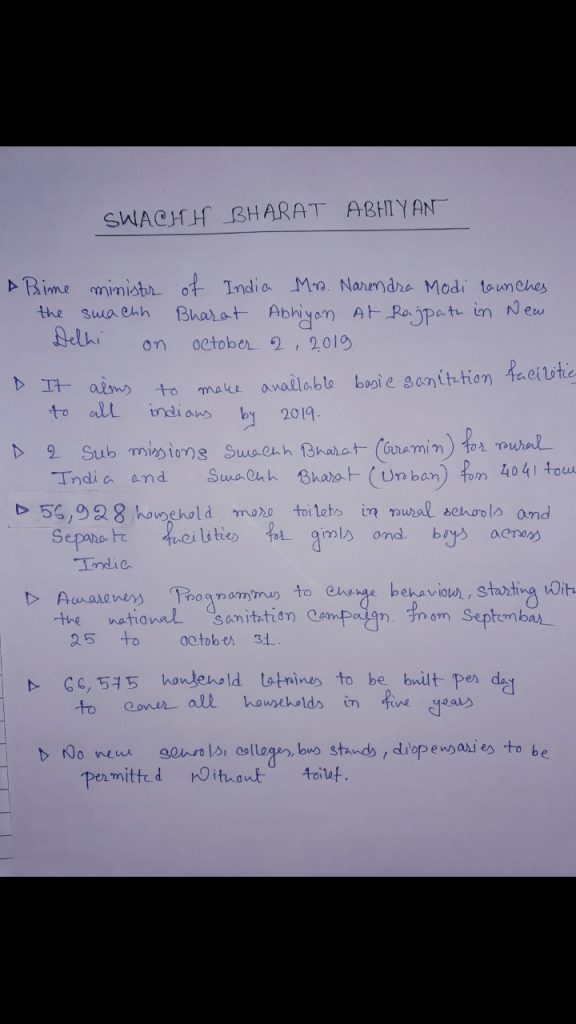 SWACHH BHARAT ABHIYAN
▷ Prime minister of India Mr. Narendra Modi launches
the swachh Bharat Abhiyan At Rajpath in New
Delhi on october 2, 2019
▷ It aims to make available basic sanitation facilitie
to all indians by 2019.
▷ 2 Sub missions Swachh Bharat (Gramin) for rural
India and Swachh Bharat (Urban) for 4041 tow
▷ 56,928 household more toilets in rural schools and
Separate facilities for girls and boys across
India
▷ Awareness Programmes to change behaviour, starting With
the national sanitation campaign from September
25 to october 31.
▷ 66,575 household latrines to be built per day
to cover all households in five years
▷ No new schools, colleges, bus stands, dispensaries to be
permitted Without toilet.